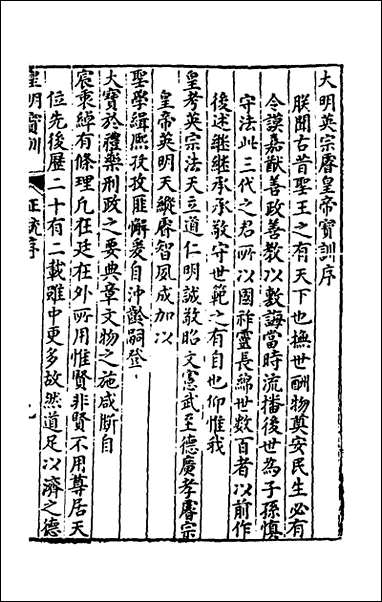 大明英宗睿皇帝寶訓序
朕聞古昔聖王之有天下也撫世酬物奠安民生必有
令謨嘉猷善政善教以敷誨當時流播後世為子孫慎
守法此三代之君所以國祚靈長綿世數百者以前作
後述繼繼承承敬守世範之有自也仰惟我
皇考英宗法天立道仁明誠敬昭文憲武至德廣孝睿宗
皇帝英明天縱睿智夙成加以
聖學緝熙孜孜匪懈爰自沖齡嗣登
大寶於禮樂刑政之要典章文物之施咸斷自
宸衷綽有條理凡在廷在外所用惟賢非賢不用尊居天
位先後歷二十有二載雖中更多故然道足以濟之德
皇明寶訓
正統序